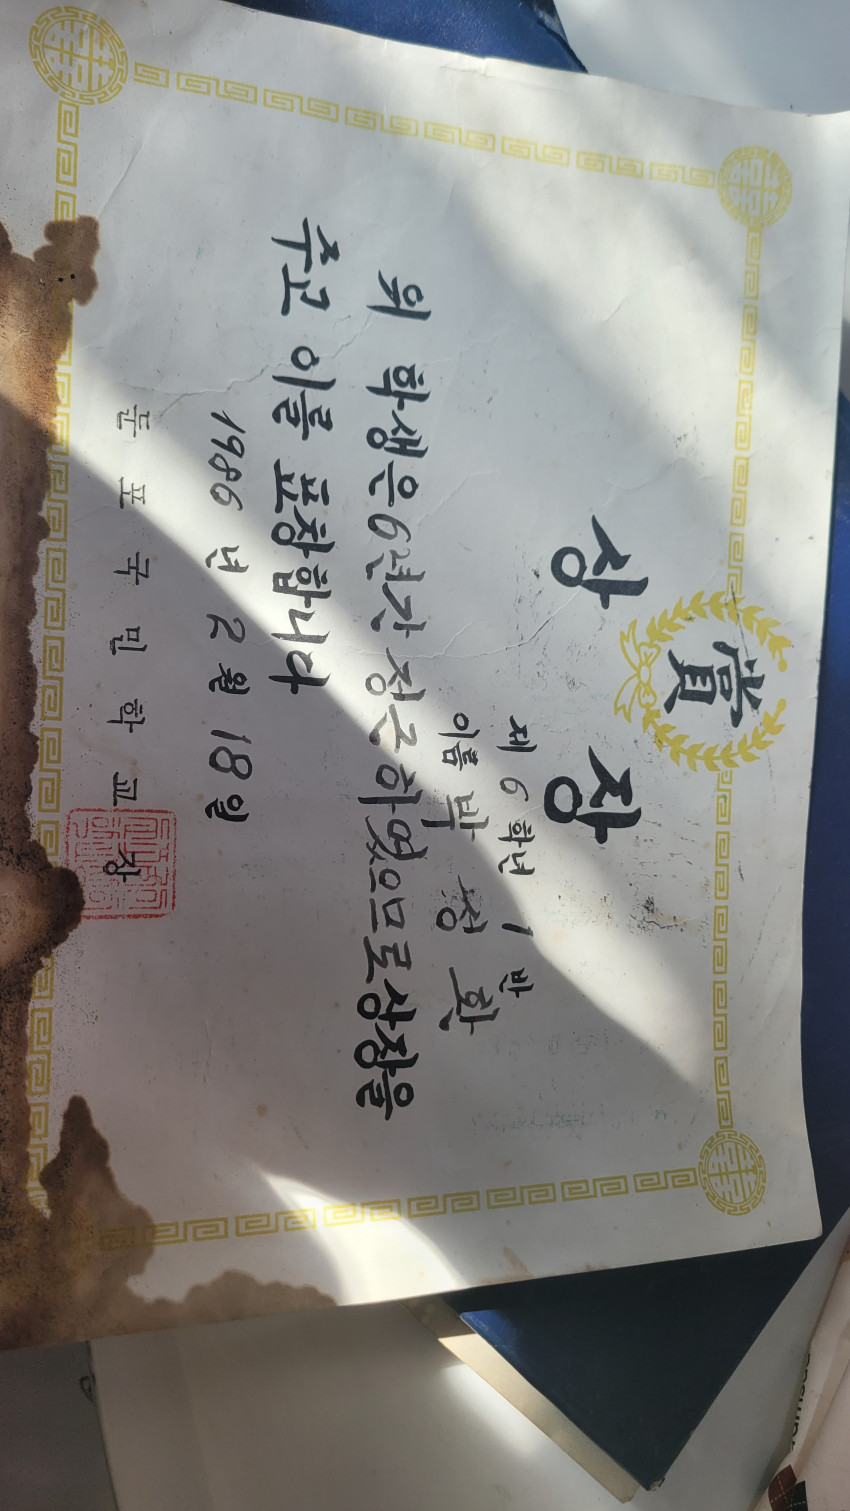 賞
상 장
제 6 학년 1 반
이름 박 성 환
위 학생은 6년간 정근하였으므로 상장을
주고 이를 표창합니다
1986 년 2 월 18 일
둔 포 국 민 학 교 장